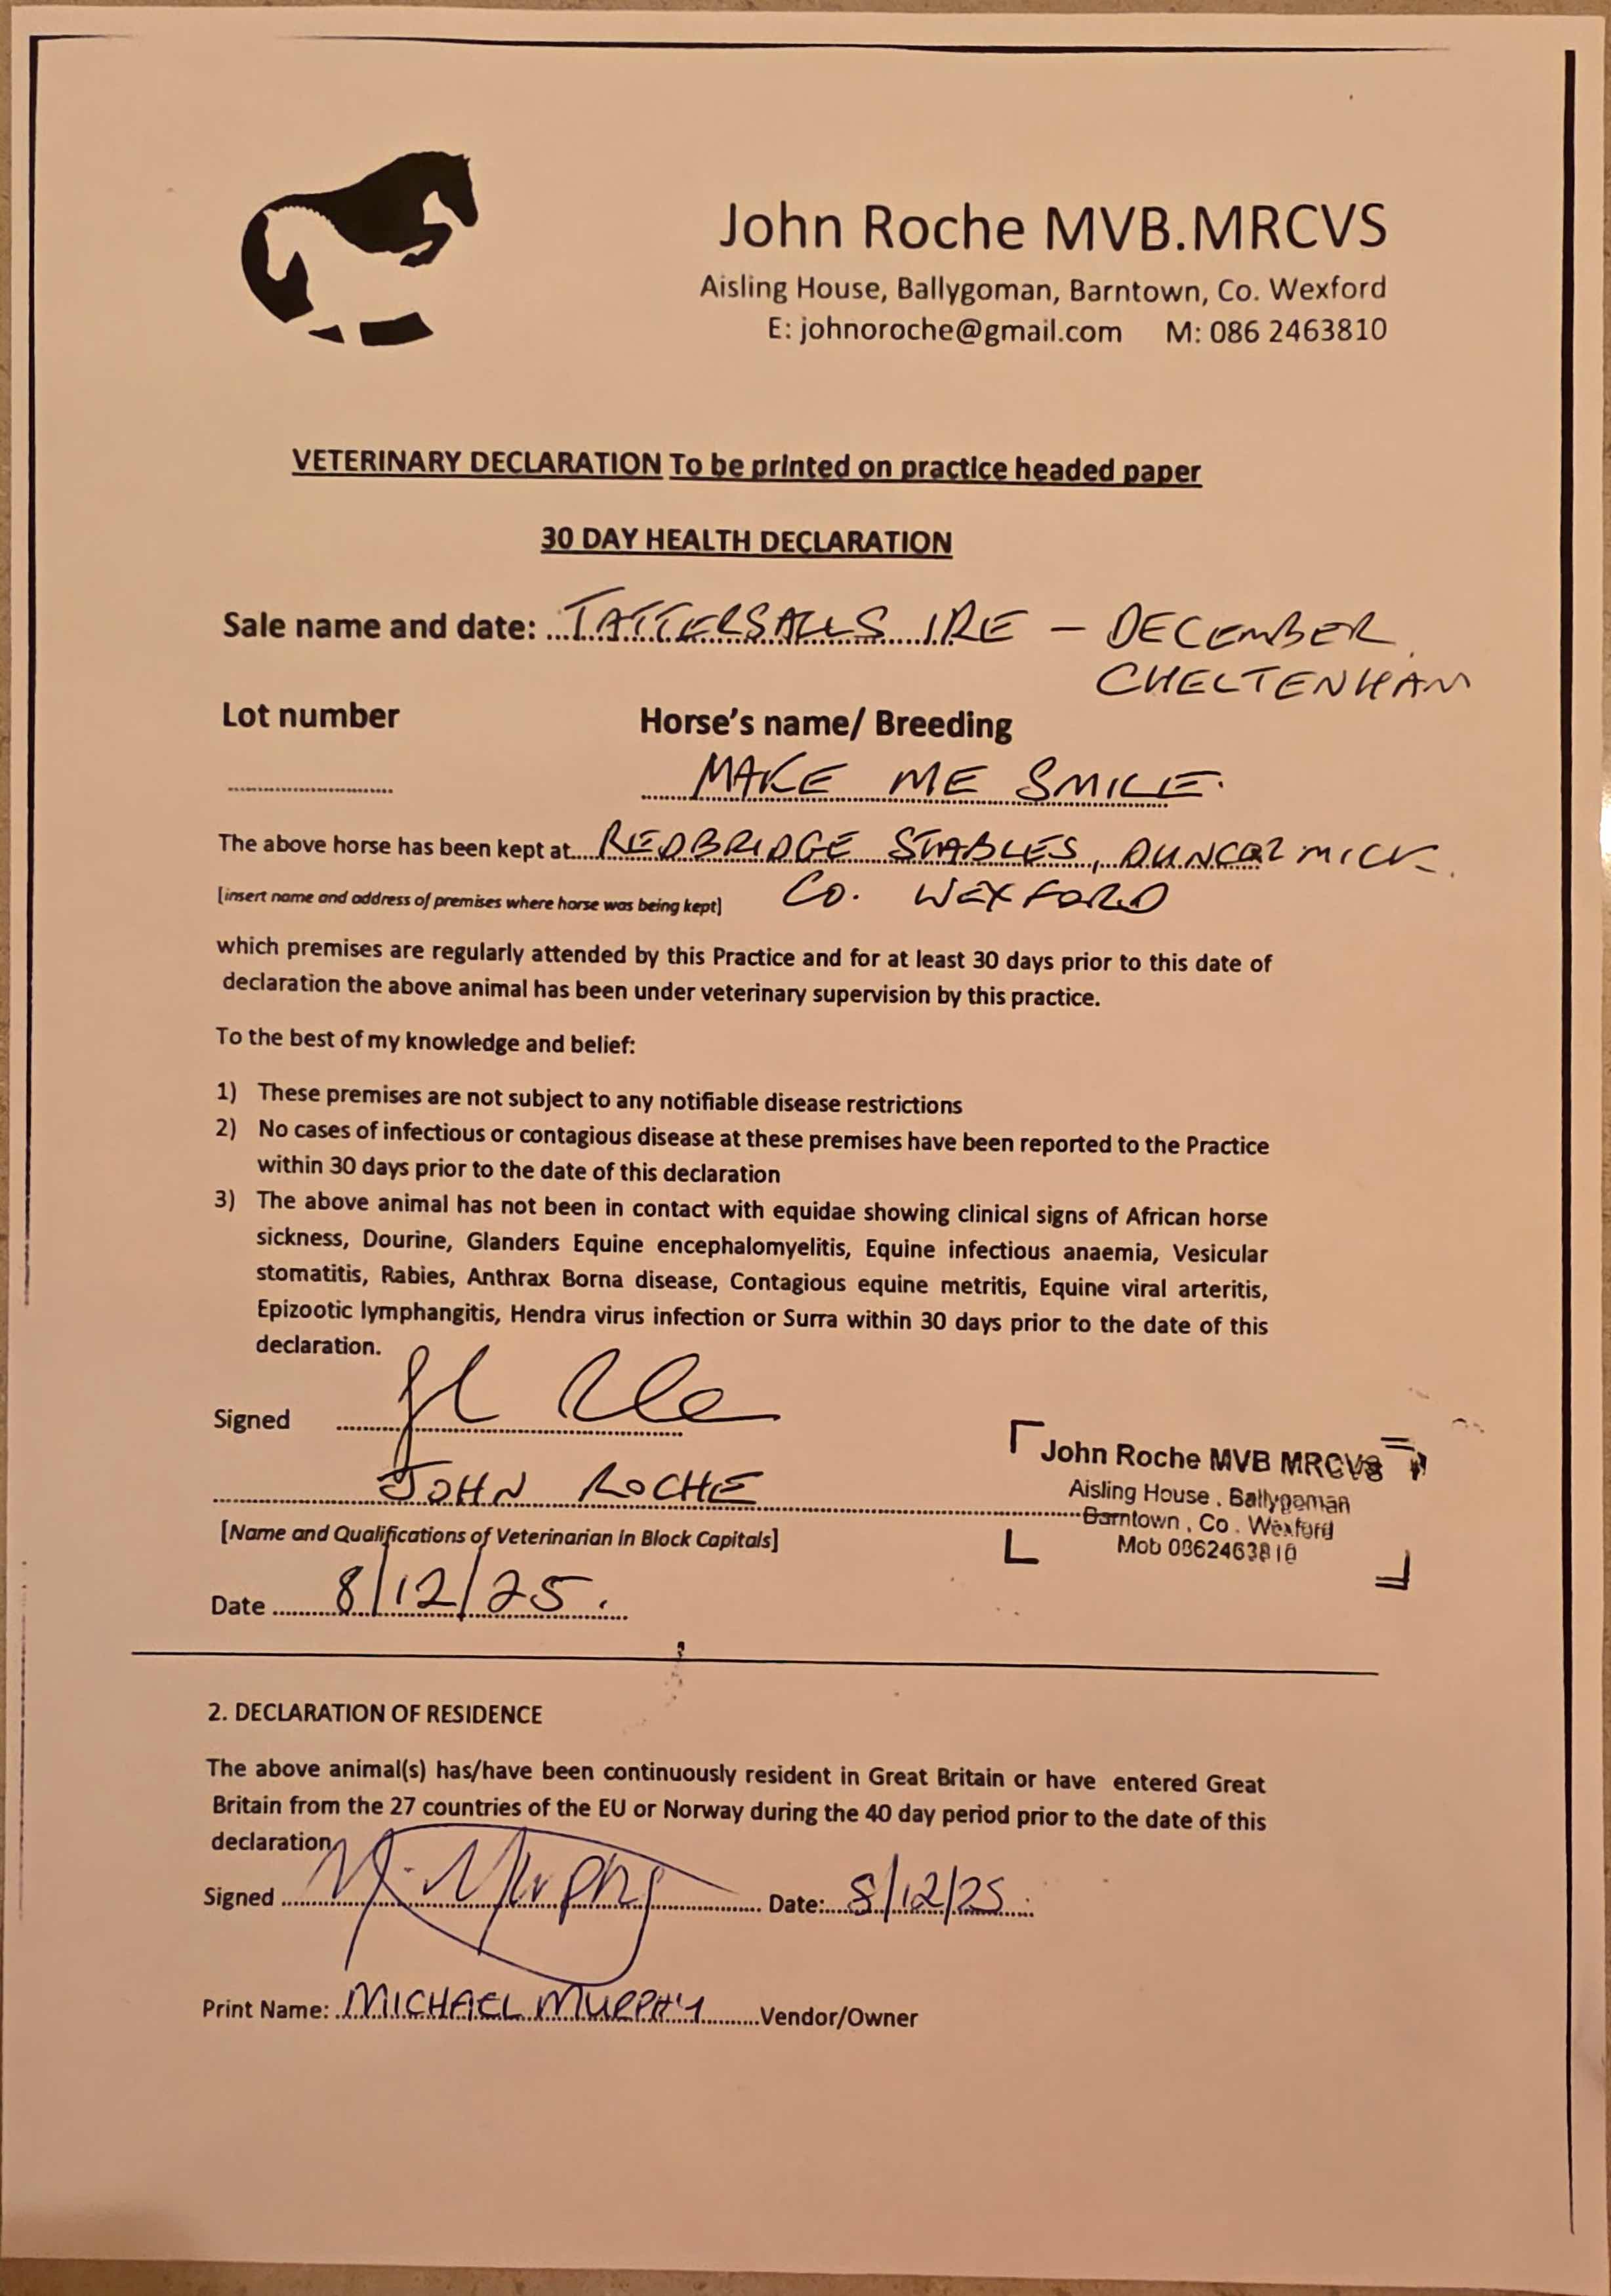 John Roche MVB.MRCVS
Aisling House, Ballygoman, Barntown, Co. Wexford
E: johnoroche@gmail.com M: 086 2463810
VETERINARY DECLARATION To be printed on practice headed paper
30 DAY HEALTH DECLARATION
Sale name and date: TATTERSALLS IRE - DECEMBER
CHELTENHAM
Lot number Horse's name/ Breeding
MAKE ME SMILE.
The above horse has been kept at REDBRIDGE STABLES, DUNCORMICK.
[insert name and address of premises where horse was being kept] CO. WEXFORD
which premises are regularly attended by this Practice and for at least 30 days prior to this date of
declaration the above animal has been under veterinary supervision by this practice.
To the best of my knowledge and belief:
1) These premises are not subject to any notifiable disease restrictions
2) No cases of infectious or contagious disease at these premises have been reported to the Practice
within 30 days prior to the date of this declaration
3) The above animal has not been in contact with equidae showing clinical signs of African horse
sickness, Dourine, Glanders Equine encephalomyelitis, Equine infectious anaemia, Vesicular
stomatitis, Rabies, Anthrax Borna disease, Contagious equine metritis, Equine viral arteritis,
Epizootic lymphangitis, Hendra virus infection or Surra within 30 days prior to the date of this
declaration.
Signed
JOHN ROCHE
[Name and Qualifications of Veterinarian in Block Capitals]
John Roche MVB MRCVS
Aisling House . Ballygoman
Barntown . Co . Wexford
Mob 0862463810
Date 8/12/25.
2. DECLARATION OF RESIDENCE
The above animal(s) has/have been continuously resident in Great Britain or have entered Great
Britain from the 27 countries of the EU or Norway during the 40 day period prior to the date of this
declaration
Signed M. Murphy Date: 8/12/25
Print Name: MICHAEL MURPHY Vendor/Owner